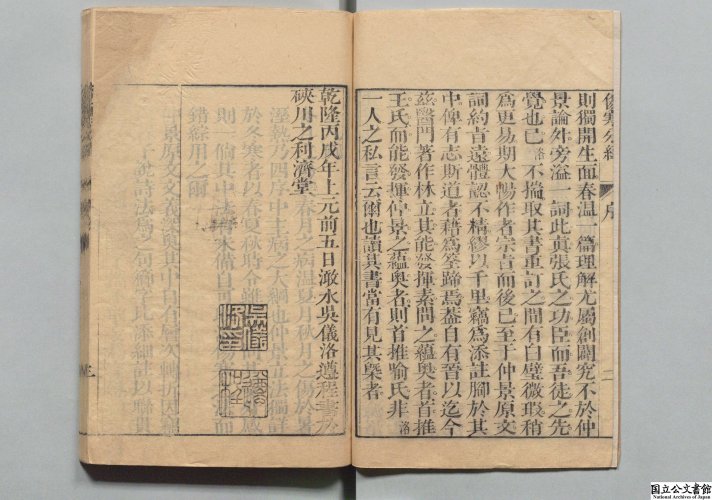 傷寒分經 序 二
則獨開生面春温一篇理解尤屬創闢究不於仲
景論外旁溢一詞此眞張氏之功臣而吾徒之先
覺也已洛不揣取其書重訂之間有白璧微瑕稍
爲更易期大暢作者宗旨而後已至于仲景原文
詞約旨遠體認不精繆以千里竊爲添註腳於其
中俾有志斯道者藉爲筌蹄焉蓋自有晉以迄今
茲醫門著作林立其能發揮素問之蘊奧者首推
王氏而能發揮仲景之蘊奧者則首推喻氏非洛
一人之私言云爾也讀其書當有見其槩者
乾隆丙戌年上元前五日澉水吳儀洛遵程書於
硤川之利濟堂
吳儀洛印
國立公文書館
National Archives of Japan